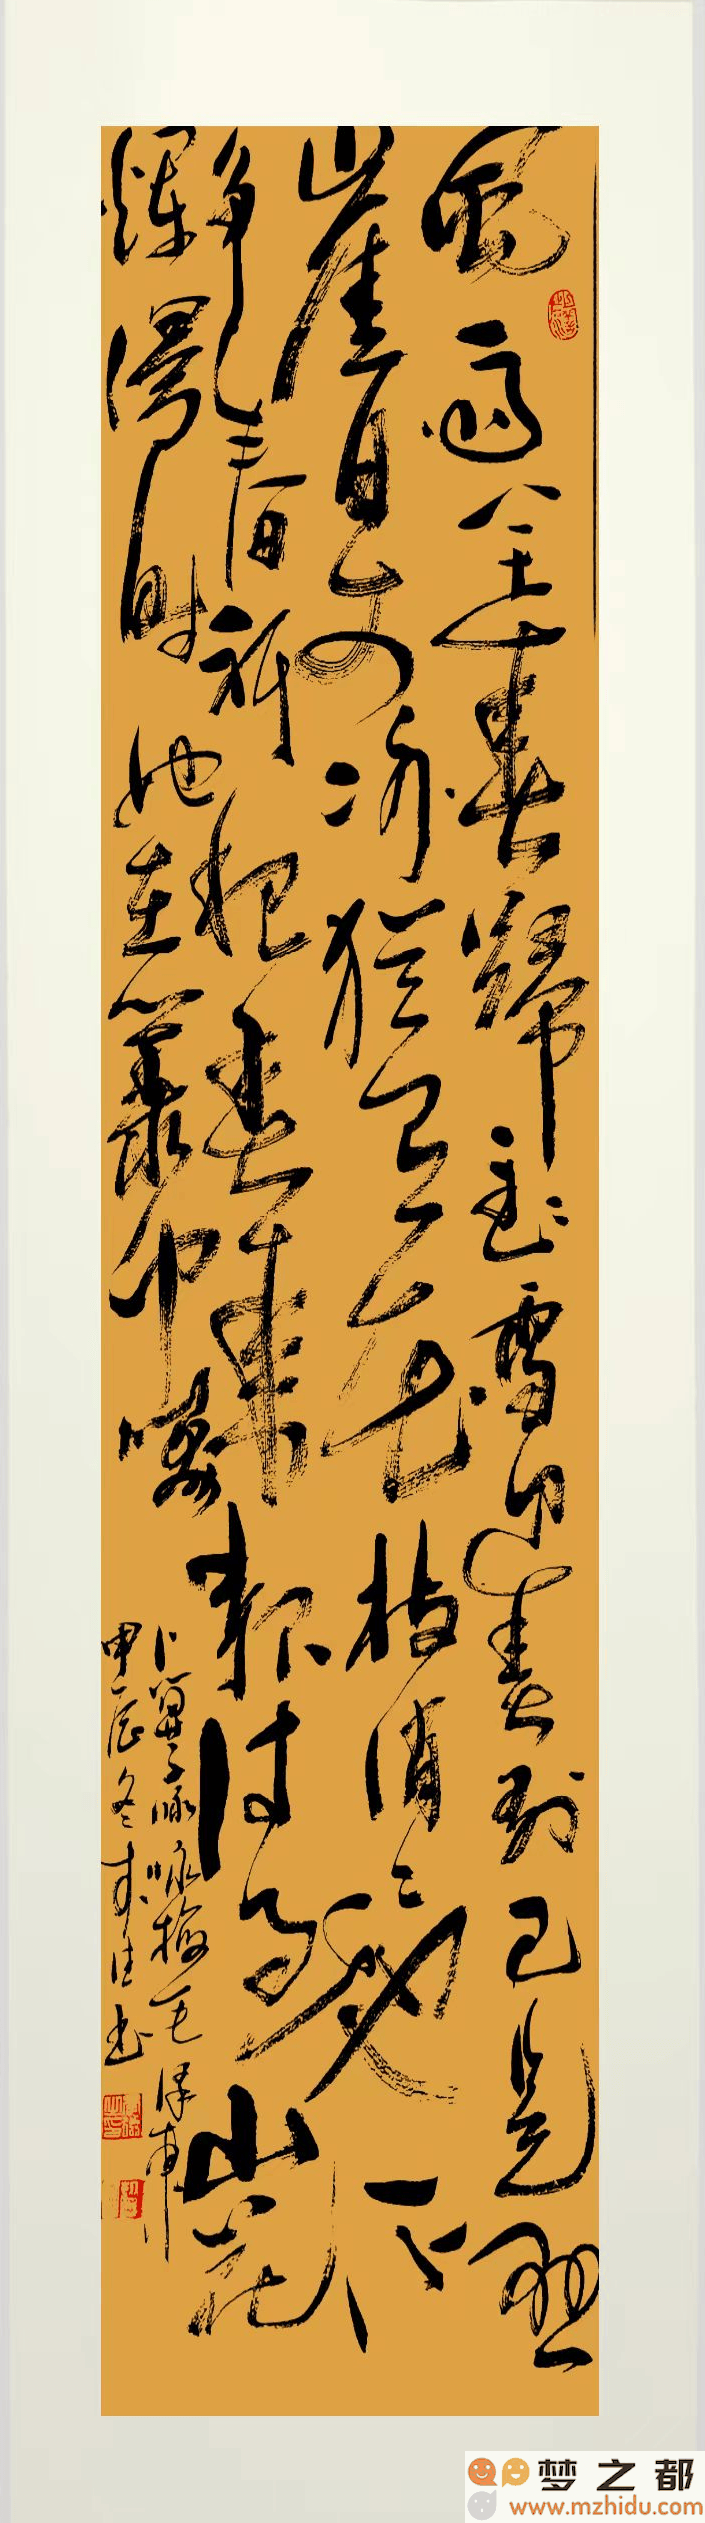 風雨送春歸飛雪迎春到已是懸
崖百丈冰猶有花枝俏〻也不
争春祇把春來報待到山花
爛漫時她在叢中笑
卜算子詠梅毛澤東
甲辰冬 書
梦之都
www.mzhidu.com